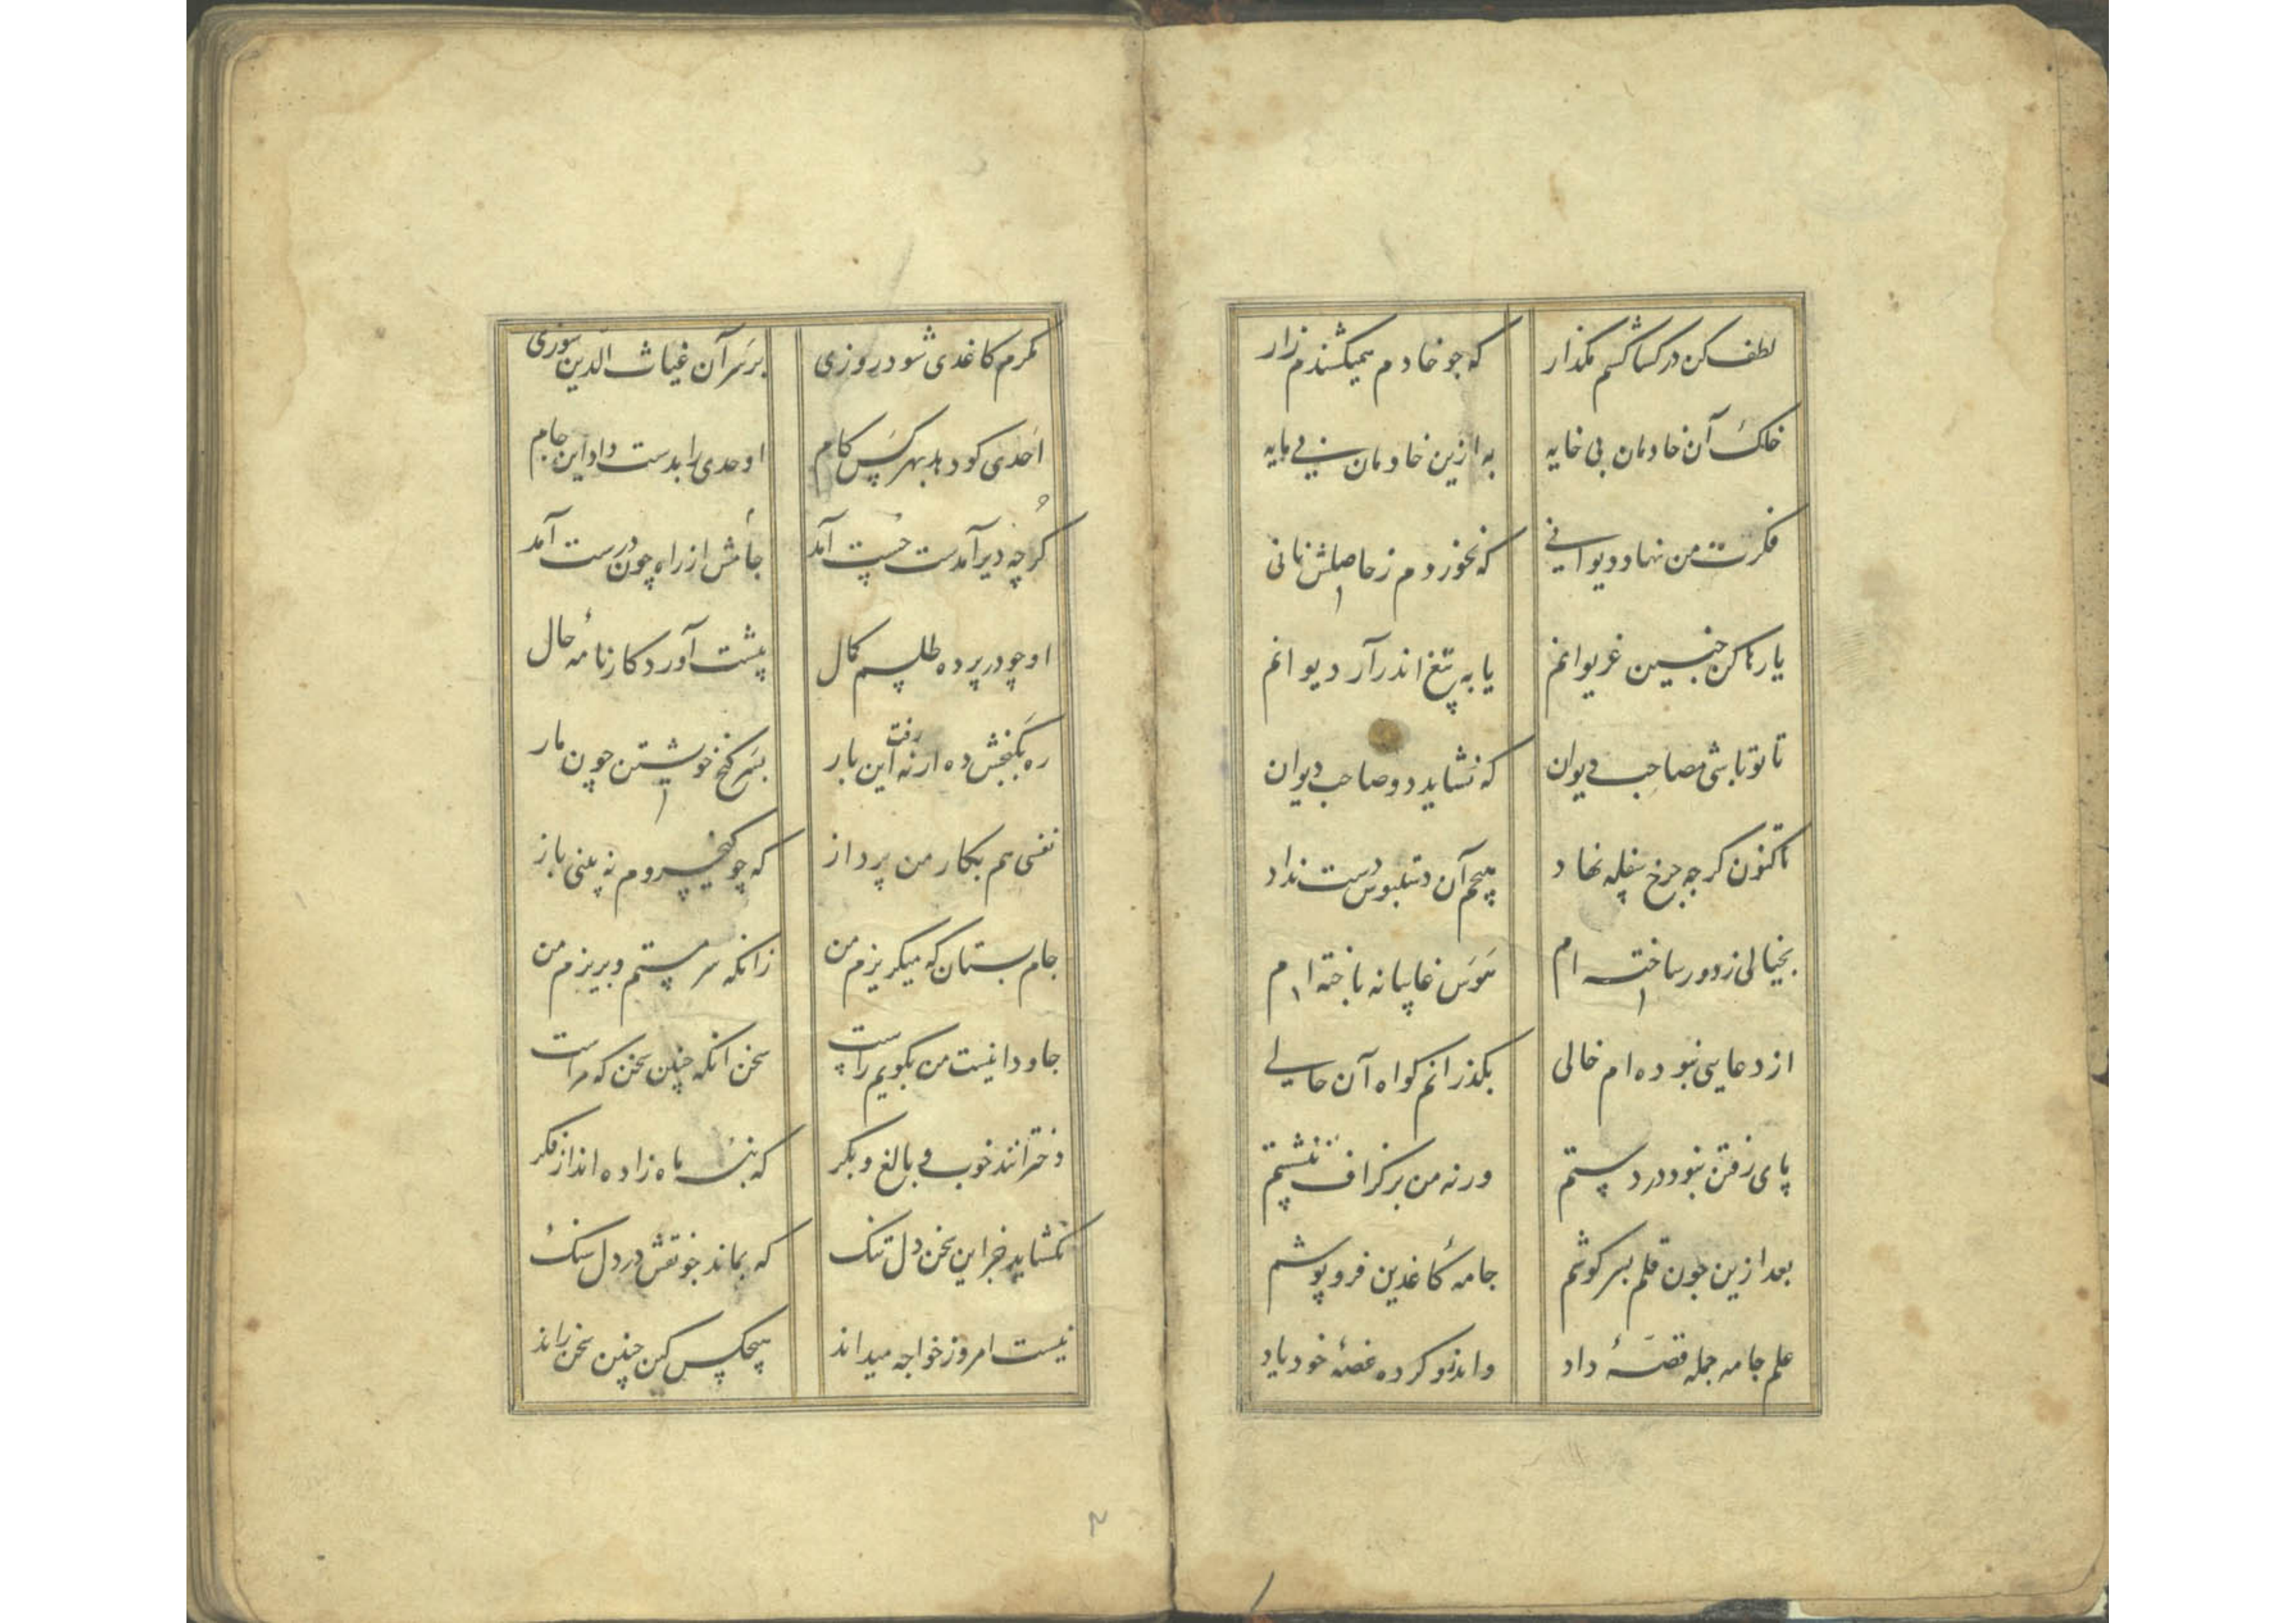 لطف کن در کشاکشم مگذار که جو خادم همیکشندم زار
خنک آن خادمان بی خایه به ازین خادمان بی مایه
فکرت من نهاد دیوانی که نخوردم ز حاصلش نانی
یا رها کن چنین غریوانم یا به تیغ اندر آر دیوانم
تا تو باشی مصاحب دیوان که نشاید دو صاحب دیوان
تاکنون کرجه جرخ سفله نهاد هیچم آن دستبوس دست نداد
بخیالی ز دور ساخته ام هوس غایبانه باخته ام
از دعایی نبوده ام خالی بکذرانم کواه آن حالی
پای رفتن نبود در دستم ورنه من بر کزاف ننشستم
بعد ازین جون قلم بسر کوشم جامهٔ کاغذین فرو پوشم
علم جامه جمله قصهٔ داد واندرو کرده غصهٔ خود یاد
مکرم کاغدی شود روزی بر سر آن غیاث الدین سوزی
احدی کو دهد بهر کس کام اوحدی را بدست داد این جام
کرچه دیر آمدست چست آمد جامش از راه چون درست آمد
او چو در پرده طلسم کمال پیشت آورد کارنامهٔ حال
ره بکنجش ده ارنه رفت این بار بسر کنج خویشتن چون مار
نفسی هم بکار من پرداز که چو کنجی روم نه بینی باز
جام بستان که میکریزم من زانکه سرمستم و بریزم من
جاودانیست من بکویم راست سخن انکه چنین سخن که مراست
دخترانند خوب و بالغ و بکر که بششماه زاده اند از فکر
نکشاید جز این سخن دل تنک که بماند جو نقش در دل سنک
نیست امروز خواجه میداند هیچکس کین چنین سخن راند